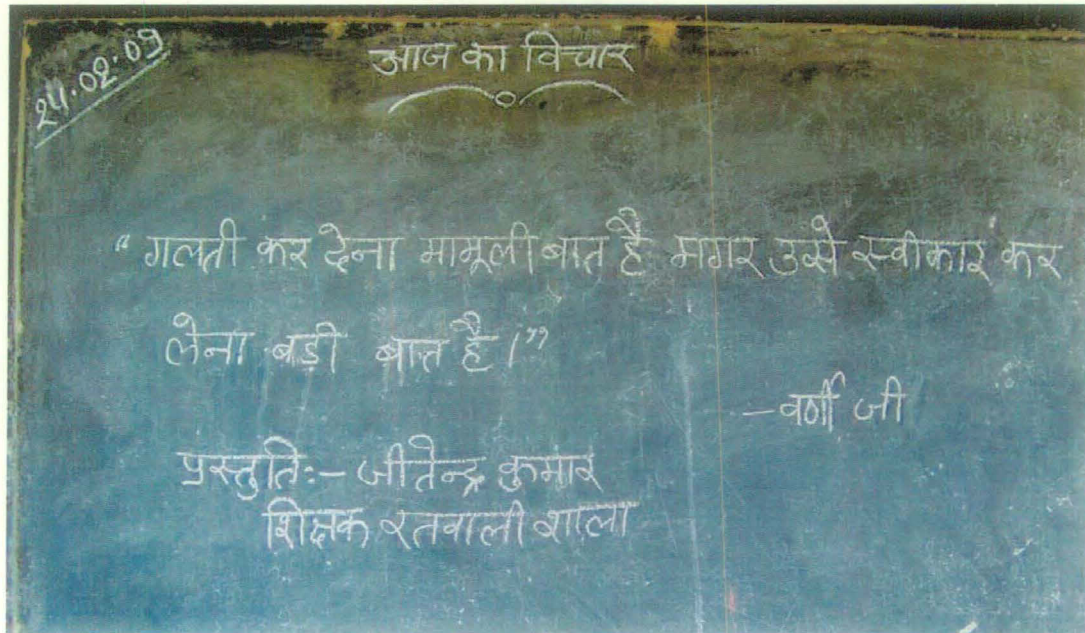 24.02.09
आज का विचार
“ गलती कर देना मामूली बात है मगर उसे स्वीकार कर
लेना बड़ी बात है।”
– वर्णी जी
प्रस्तुतिः– जीतेन्द्र कुमार
शिक्षक रतवाली शाला